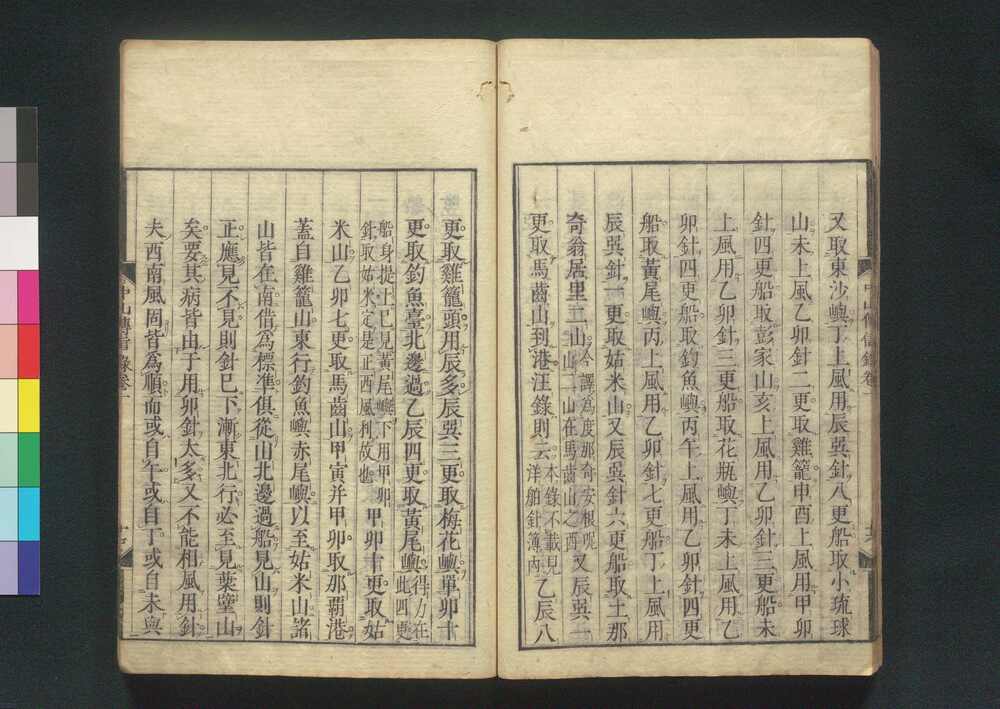 又取東沙嶼丁上風用辰巽針八更船取小琉球
山未上風乙卯針二更取雞籠申酉上風用甲卯
針四更船取彭家山亥上風用乙卯針三更船未
上風用乙卯針三更船取花瓶嶼丁未上風用乙
卯針四更船取釣魚嶼丙午上風用乙卯針四更
船取黃尾嶼丙上風用乙卯針七更船丁上風用
辰巽針一更取姑米山又辰巽針六更船取土那
奇翁居里二山今譯為度那奇安根呢山二山在馬齒山之西又辰巽一
更取馬齒山到港汪錄則云本錄不載見洋舶針簿內乙辰八
更取雞籠頭用辰多辰巽三更取梅花嶼單卯十
更取釣魚臺北邊過乙辰四更取黃尾嶼得力在此四更
船身提上巳見黃尾嶼下用甲卯針取姑米定是正西風利故也甲卯十更取姑
米山乙卯七更取馬齒山甲寅并甲卯取那霸港
蓋自雞籠山東行釣魚嶼赤尾嶼以至姑米山諸
山皆在南借為標準俱從山北邊過船見山則針
正應見不見則針巳下漸東北行必至見葉壁山
矣要其病皆由于用卯針太多又不能相風用針
夫西南風固皆為順而或自午或自丁或自未與
中山傳信錄卷一